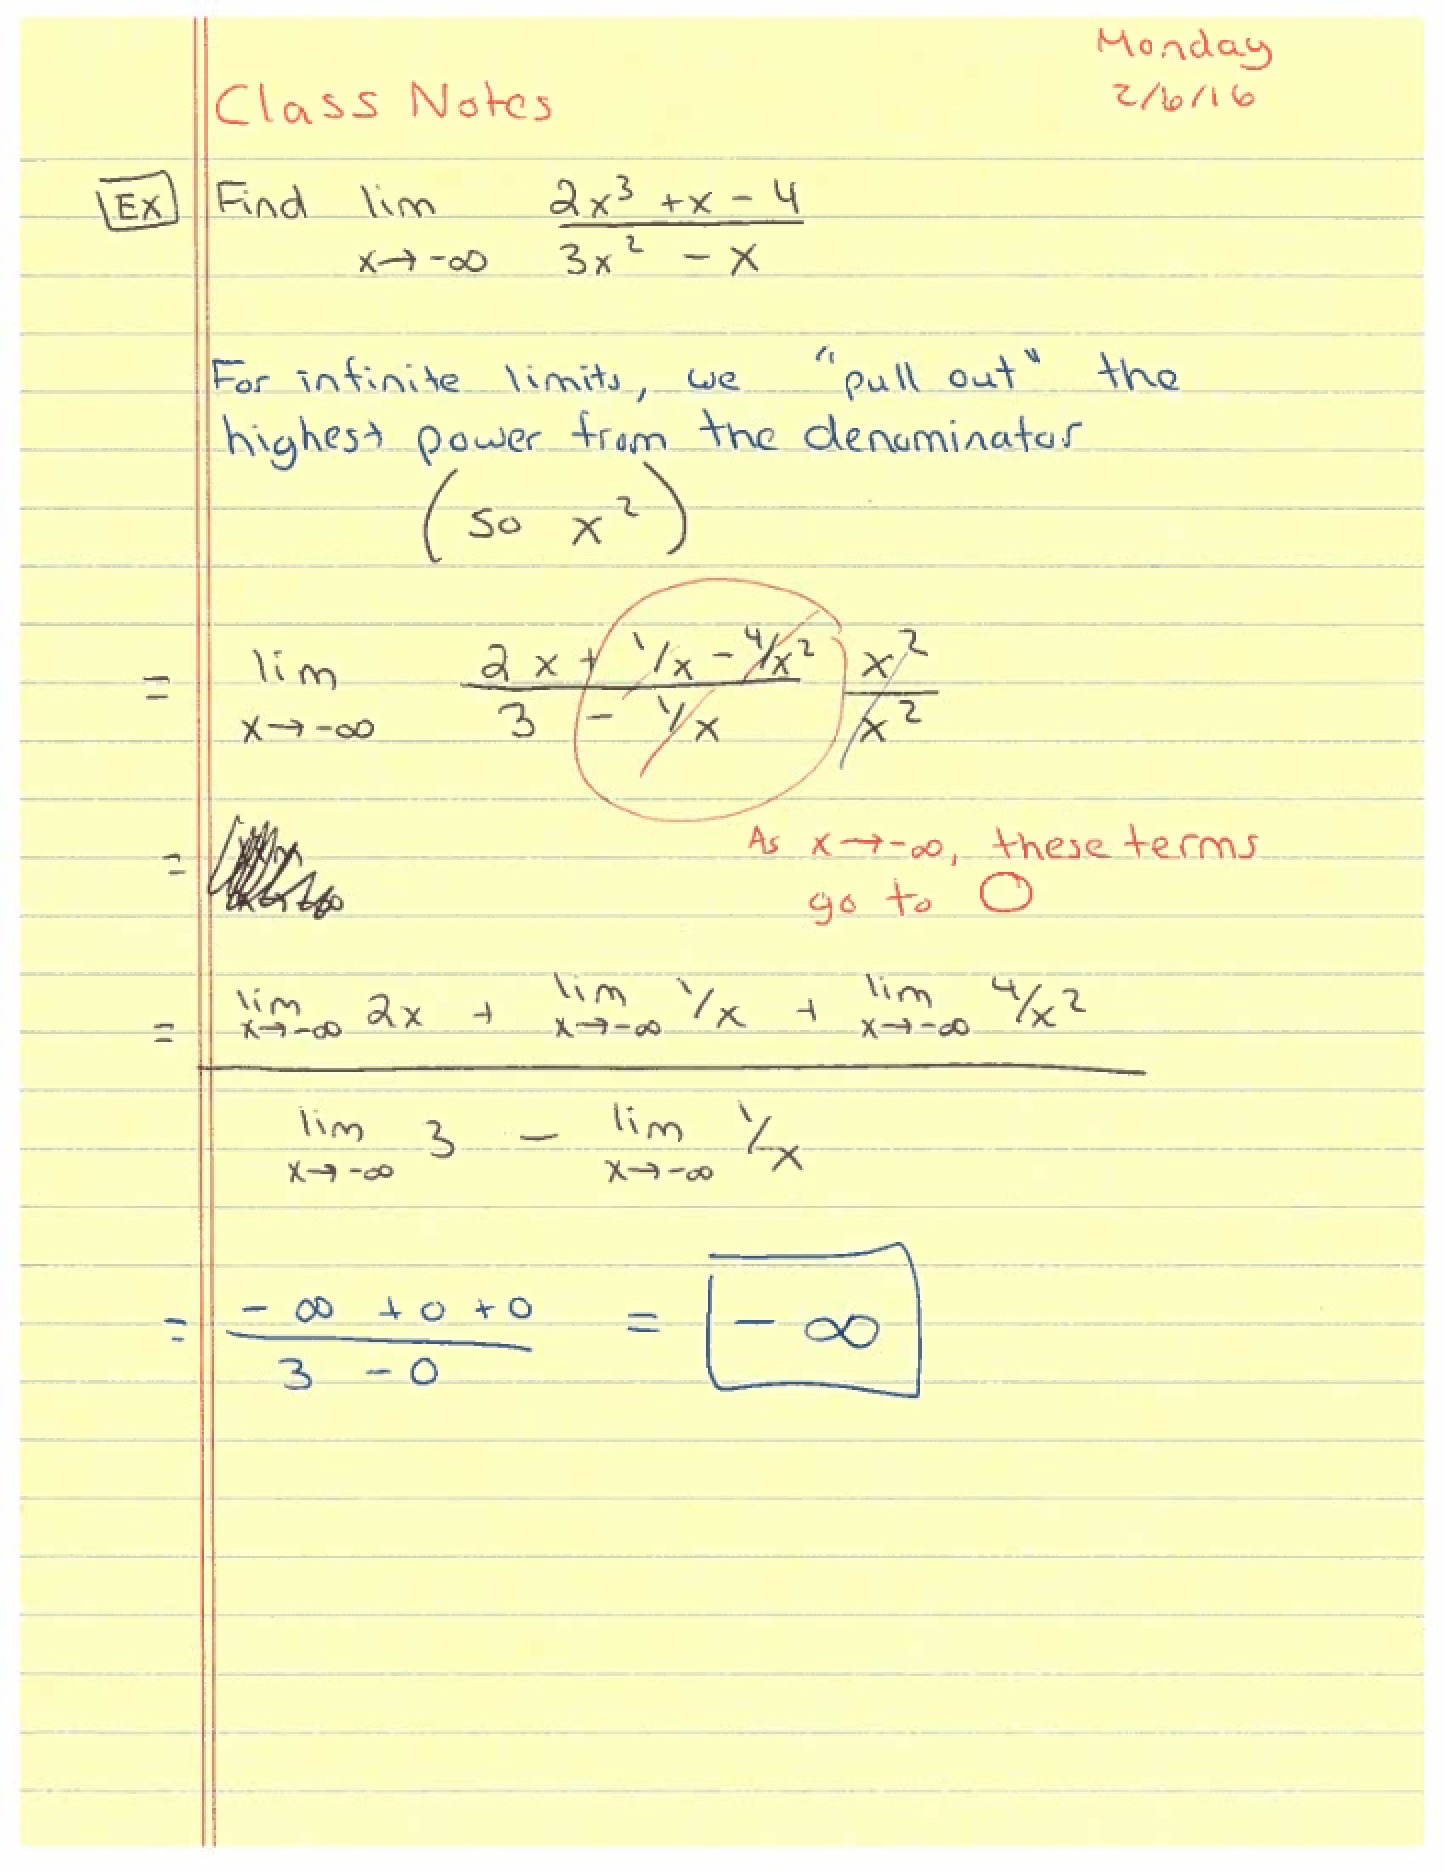 Monday
2/6/16
Class Notes
Ex Find lim 2x³ + x - 4
x→-∞ 3x² - x
For infinite limits, we "pull out" the
highest power from the denominator
(so x²)
= lim 2x + 1/x - 4/x² x²
x→-∞ 3 - 1/x x²
=
As x→-∞, these terms
go to 0
= lim 2x + lim 1/x + lim 4/x²
x→-∞ x→-∞ x→-∞
lim 3 - lim 1/x
x→-∞ x→-∞
= -∞ + 0 + 0 = -∞
3 - 0